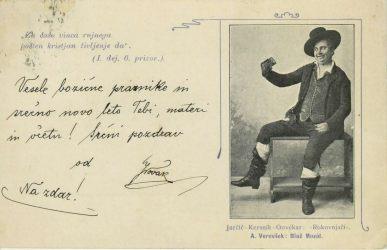 „Za dobo vinca rujnega
pošten kristjan življenje da“.
(I. dej. 6. prizor.)
Vesele božične praznike in
srečno novo leto Tebi, materi
in očetu! Srčni pozdrav
od
Novak
Na zdar!
Jurčič-Kersnik-Govekar: »Rokovnjači«.
A. Verovšek: Blaž Mozol.